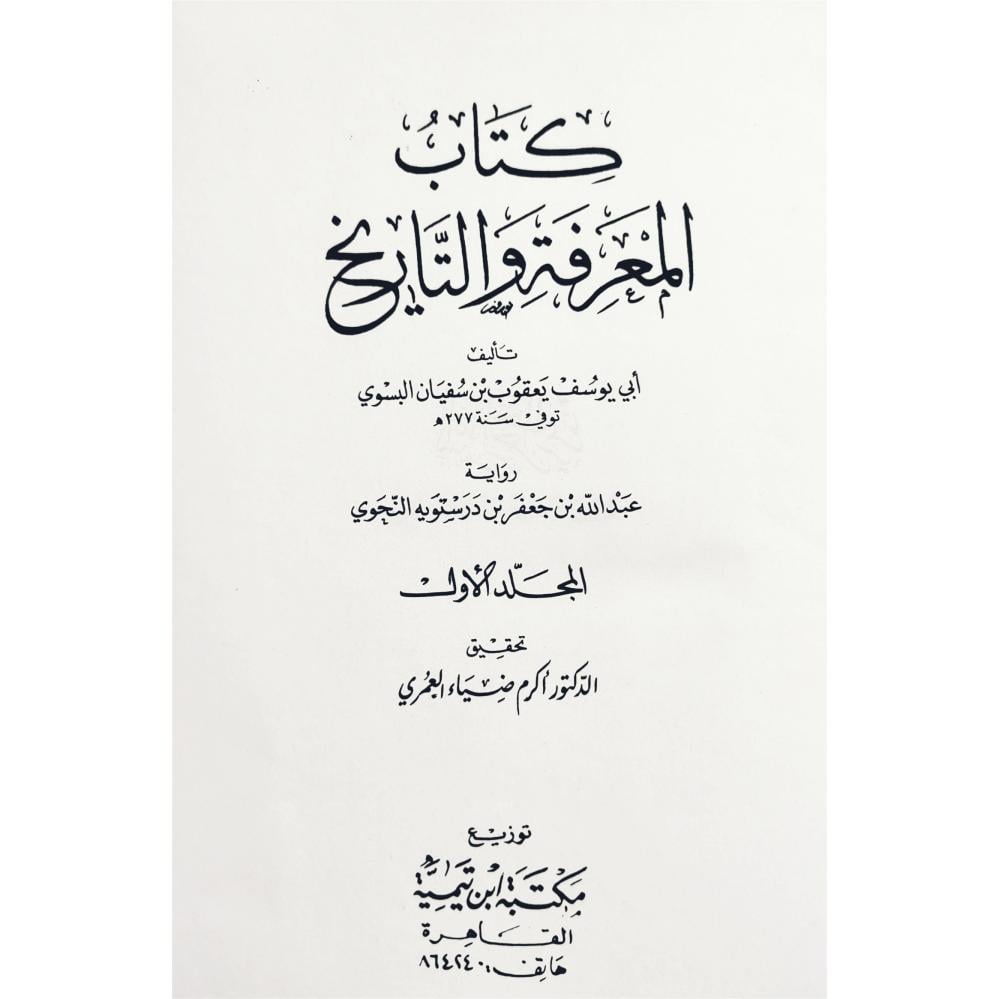 كِتَابُ
المَعْرِفَةِ وَالتَّارِيخ
تأليف
أبي يوسُف يَعقوُب بْن سُفيَان البسْوي
توفي سَنَة ٢٧٧ ه
روَايَة
عَبْد الله بْن جَعْفَر بْن دَرَسْتَويه النَّحَوي
المجَلّد الأول
تحقيق
الدّكتور أكرم ضِيَاء العُمَري
توزيع
مَكتَبَة ابْن تَيميَّة
القَاهِرة
هَاتِف: ٨٦٤٢٤٠